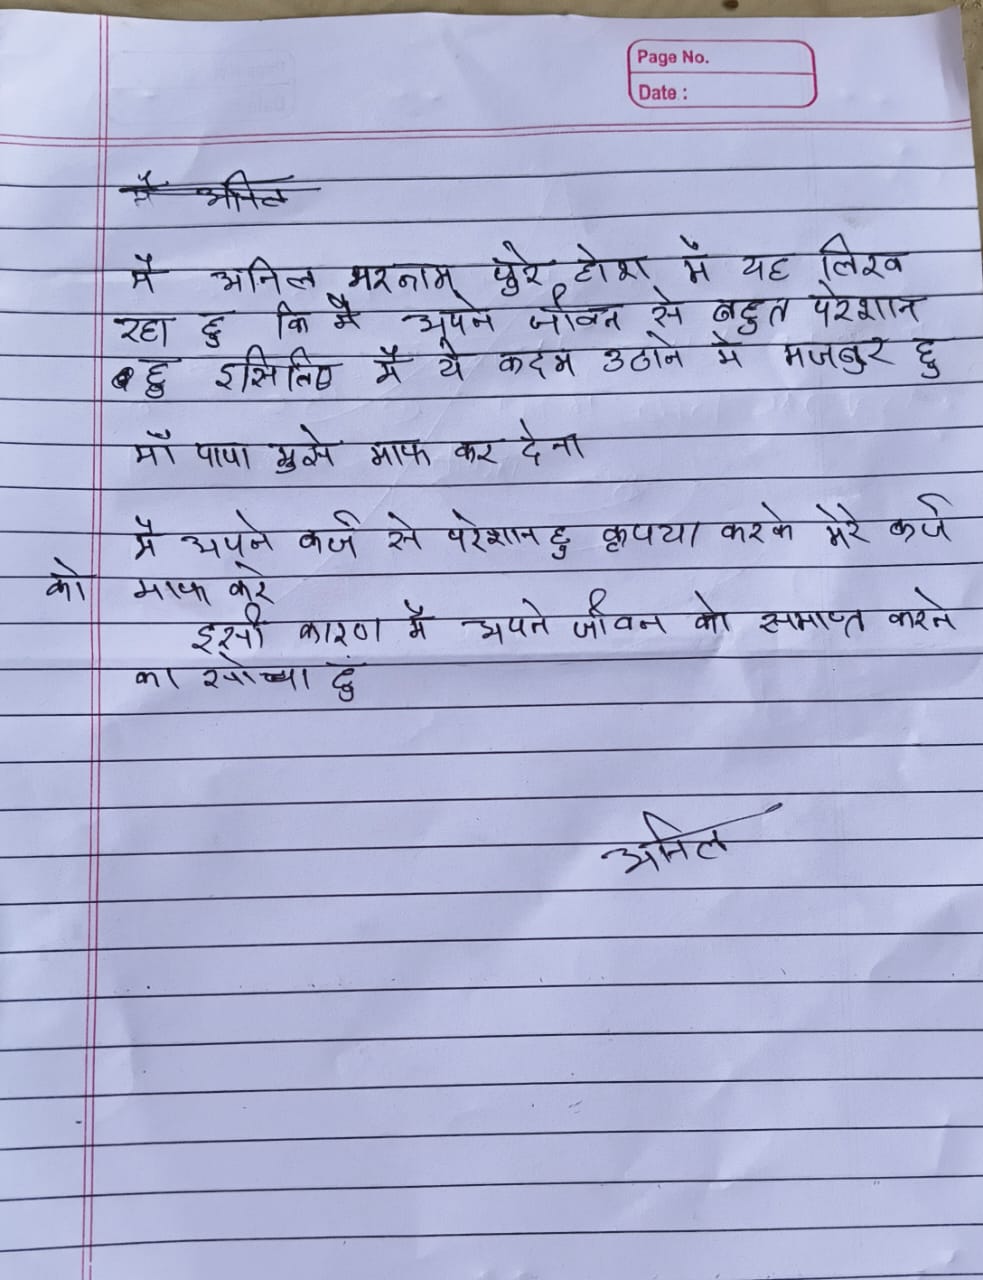 Page No.
Date :
मैं अनिल
मैं अनिल मरनाम् पुरे होश में यह लिख
रहा हु कि मैं अपने जीवन से बहुत परेशान
हु इसलिए मैं ये कदम उठाने मे मजबुर हु
माँ पापा मुझे माफ कर देना
मैं अपने कर्ज से परेशान हु कृपया करके मेरे कर्ज
को माफ करे
इसी कारण मैं अपने जीवन को समाप्त करने
का सोच्या हुं
अनिल